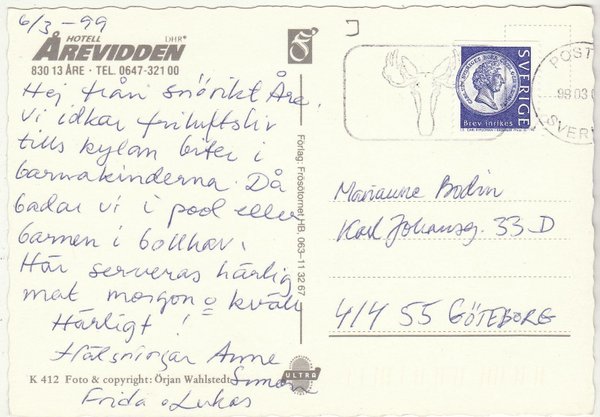 6/3 -99
HOTELL
DHR
ÅREVIDDEN
830 13 ÅRE · TEL. 0647-321 00
Hej från snörikt Åre.
Vi idkar friluftsliv
tills kylan biter i
barnakinderna. Då
badar vi i pool eller
barnen i bollhav.
Här serveras härlig
mat morgon o kväll
Härligt!
Hälsningar Anne
Simon
Frida o Lukas
K 412 Foto & copyright: Örjan Wahlstedt
ULTRA
Förlag: Frösötornet HB. 063-11 32 67
SVERIGE
Brev inrikes
POST
SVER
Marianne Bodin
Karl Johansg. 33 D
414 55 GÖTEBORG